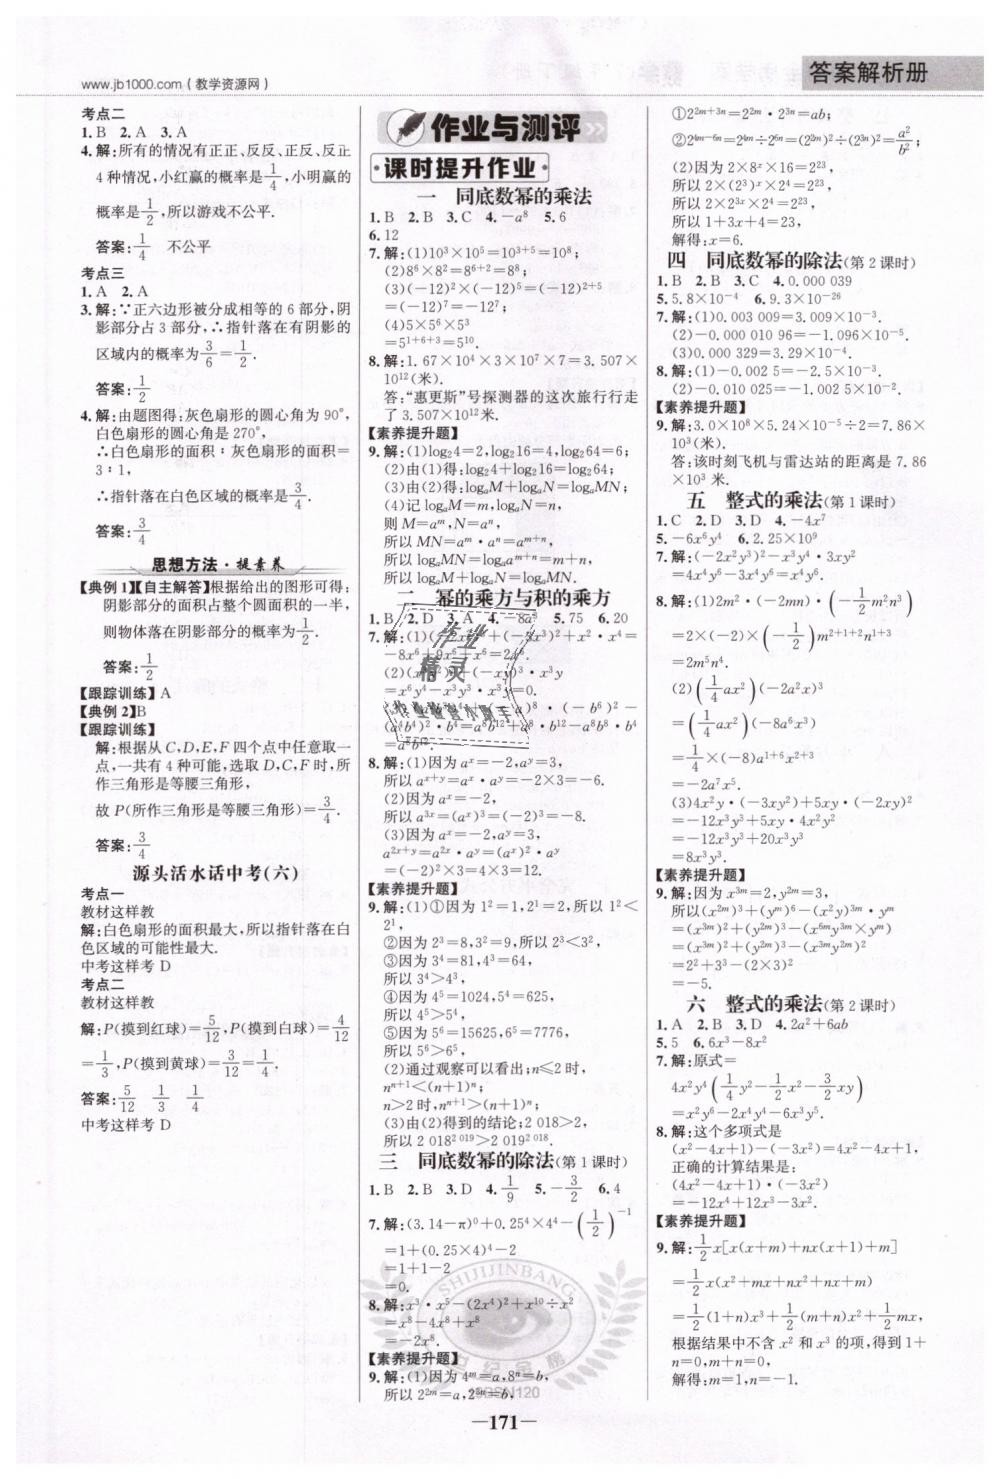 www.jb1000.com(教学资源网)
答案解析册
考点二
1. B 2. A 3. A
4. 解:所有的情况有正正、反反、正反、反正
4种情况,小红赢的概率是1/4,小明赢的
概率是1/2,所以游戏不公平.
答案:1/4 不公平
考点三
1. A 2. A
3. 解:∵正六边形被分成相等的6部分,阴
影部分占3部分,∴指针落在有阴影的
区域内的概率为3/6=1/2.
答案:1/2
4. 解:由题图得:灰色扇形的圆心角为90°,
白色扇形的圆心角是270°,
∴白色扇形的面积:灰色扇形的面积=
3∶1,
∴指针落在白色区域的概率是3/4.
答案:3/4
思想方法·提素养
【典例1】【自主解答】根据给出的图形可得:
阴影部分的面积占整个圆面积的一半,
则物体落在阴影部分的概率为1/2.
答案:1/2
【跟踪训练】A
【典例2】B
【跟踪训练】
解:根据从C,D,E,F四个点中任意取一
点,一共有4种可能,选取D,C,F时,所
作三角形是等腰三角形,
故P(所作三角形是等腰三角形)=3/4.
答案:3/4
源头活水话中考(六)
考点一
教材这样教
解:白色扇形的面积最大,所以指针落在白
色区域的可能性最大.
中考这样考 D
考点二
教材这样教
解:P(摸到红球)=5/12,P(摸到白球)=4/12
=1/3,P(摸到黄球)=3/12=1/4.
答案:5/12 1/3 1/4
中考这样考 D
作业与测评
课时提升作业
一 同底数幂的乘法
1. B 2. B 3. C 4. -a⁸ 5. 6
6. 12
7. 解:(1)10³×10⁵=10³⁺⁵=10⁸;
(2)8⁶×8²=8⁶⁺²=8⁸;
(3)(-12)²×(-12)⁵=(-12)²⁺⁵
=(-12)⁷=-12⁷;
(4)5×5⁶×5³
=5¹⁺⁶⁺³=5¹⁰.
8. 解:1.67×10⁴×3×10⁷×7=3.507×
10¹²(米).
答:“惠更斯”号探测器的这次旅行行走
了3.507×10¹²米.
【素养提升题】
9. 解:(1)log₂4=2,log₂16=4,log₂64=6;
(2)由(1)得:log₂4+log₂16=log₂64;
(3)由(2)得:logₐM+logₐN=logₐMN;
(4)记logₐM=m,logₐN=n,
则M=aᵐ,N=aⁿ,
所以MN=aᵐ·aⁿ=aᵐ⁺ⁿ,
所以logₐMN=logₐaᵐ⁺ⁿ=m+n,
所以logₐM+logₐN=logₐMN.
二 幂的乘方与积的乘方
1. B 2. D 3. A 4. -8a⁹ 5. 75 6. 20
7. 解:(1)
+x²·x⁴=
-8x⁶+9x⁶+x⁶=2x⁶.
·x³y
=x⁶y⁴-x³y³·x³y=0.
-(-b⁶)²-
(a⁴b⁴)²·b⁴=a⁸b¹²+a⁸·b¹²-a⁸b⁸·b⁴
=a⁸b¹².
8. 解:(1)因为aˣ=-2,aʸ=3,
所以aˣ⁺ʸ=aˣ·aʸ=-2×3=-6.
(2)因为aˣ=-2,
所以a³ˣ=(aˣ)³=(-2)³=-8.
(3)因为aˣ=-2,aʸ=3,
a²ˣ⁺ʸ=a²ˣ·aʸ=(aˣ)²·aʸ
=(-2)²×3=4×3=12.
【素养提升题】
9. 解:(1)①因为1²=1,2¹=2,所以1²<
2¹,
②因为2³=8,3²=9,所以2³<3²,
③因为3⁴=81,4³=64,
所以3⁴>4³,
④因为4⁵=1024,5⁴=625,
所以4⁵>5⁴,
⑤因为5⁶=15625,6⁵=7776,
所以5⁶>6⁵,
(2)通过观察可以看出;n≤2时,
nⁿ⁺¹<(n+1)ⁿ;
n>2时,nⁿ⁺¹>(n+1)ⁿ;
(3)由(2)得到的结论;2 018>2,
所以2 018²⁰¹⁹>2 019²⁰¹⁸.
三 同底数幂的除法(第1课时)
1. B 2. B 3. D 4. 1/9 5. -3/2 6. 4
7. 解:(3.14-π)⁰+0.25⁴×4⁴-(1/2)⁻¹
=1+(0.25×4)⁴-2
=1+1-2
=0.
8. 解:x³·x⁵-(2x⁴)²+x¹⁰÷x²
=x⁸-4x⁸+x⁸
=-2x⁸.
【素养提升题】
9. 解:(1)因为4ᵐ=a,8ⁿ=b,
所以2²ᵐ=a,2³ⁿ=b,
①2²ᵐ⁺³ⁿ=2²ᵐ·2³ⁿ=ab;
②2⁴ᵐ⁻⁶ⁿ=2⁴ᵐ÷2⁶ⁿ=(2²ᵐ)²÷(2³ⁿ)²=a²/b²;
(2)因为2×8ˣ×16=2²³,
所以2×(2³)ˣ×2⁴=2²³,
所以2×2³ˣ×2⁴=2²³,
所以1+3x+4=23,
解得:x=6.
四 同底数幂的除法(第2课时)
1. B 2. B 3. C 4. 0.000 039
5. 5.8×10⁻⁴ 6. 9.3×10⁻²⁶
7. 解:(1)0.003 009=3.009×10⁻³.
(2)-0.000 010 96=-1.096×10⁻⁵.
(3)0.000 329=3.29×10⁻⁴.
8. 解:(1)-0.002 5=-2.5×10⁻³.
(2)-0.010 025=-1.002 5×10⁻².
【素养提升题】
9. 解:3.0×10⁸×5.24×10⁻⁵÷2=7.86×
10³(米).
答:该时刻飞机与雷达站的距离是7.86
×10³米.
五 整式的乘法(第1课时)
1. C 2. D 3. D 4. -4x⁷
5. -6x⁶y⁴ 6. 2.25×10⁹
7. 解:(-2x²y³)²-x³y⁴·3xy²
=4x⁴y⁶-3x⁴y⁶=x⁴y⁶.
8. 解:(1)2m²·(-2mn)·(-1/2m²n³)
=2×(-2)×(-1/2)m²⁺¹⁺²n¹⁺³
=2m⁵n⁴.
(2)(1/4ax²)(-2a²x)³
=(1/4ax²)(-8a⁶x³)
=1/4×(-8)a¹⁺⁶x²⁺³
=-2a⁷x⁵.
(3)4x²y·(-3xy²)+5xy·(-2xy)²
=-12x³y³+5xy·4x²y²
=-12x³y³+20x³y³
=8x³y³.
【素养提升题】
9. 解:因为x³ᵐ=2,y²ᵐ=3,
所以(x²ᵐ)³+(yᵐ)⁶-(x²y)³ᵐ·yᵐ
=(x³ᵐ)²+(y²ᵐ)³-(x⁶ᵐy³ᵐ×yᵐ)
=(x³ᵐ)²+(y²ᵐ)³-(x³ᵐy²ᵐ)²
=2²+3³-(2×3)²
=-5.
六 整式的乘法(第2课时)
1. A 2. B 3. D 4. 2a²+6ab
5. 5 6. 6x³-8x²
7. 解:原式=
4x²y⁴(1/4y²-1/2x²-3/2xy)
=x²y⁶-2x⁴y⁴-6x³y⁵.
8. 解:这个多项式是
(x²-4x+1)-(-3x²)=4x²-4x+1,
正确的计算结果是:
(4x²-4x+1)·(-3x²)
=-12x⁴+12x³-3x².
【素养提升题】
9. 解:1/2x[x(x+m)+nx(x+1)+m]
=1/2x(x²+mx+nx²+nx+m)
=1/2(1+n)x³+1/2(m+n)x²+1/2mx,
根据结果中不含x²和x³的项,得到1+
n=0,m+n=0,
解得:m=1,n=-1.
作业
精灵
SHIJIJINBANG
世纪金榜
—171—